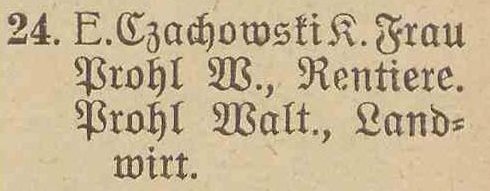 24. E. Czachowski K. Frau
Prohl W., Rentiere.
Prohl Walt., Land-
wirt.